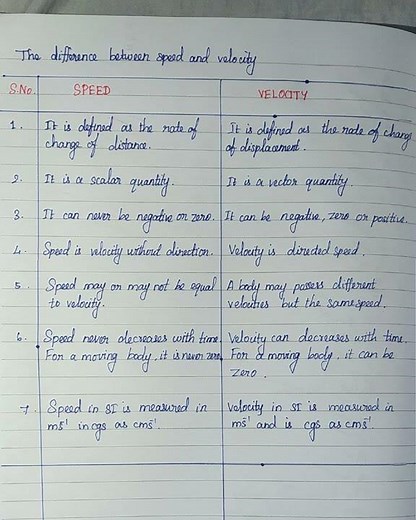 The difference between speed and velocity
S.No. SPEED VELOCITY
1. It is defined as the rate of
change of distance.
It is defined as the rate of change
of displacement.
2. It is a scalar quantity.
It is a vector quantity.
3. It can never be negative or zero.
It can be negative, zero or positive.
4. Speed is velocity without direction.
Velocity is directed speed.
5. Speed may or may not be equal
to velocity.
A body may possess different
velocities but the same speed.
6. Speed never decreases with time.
For a moving body, it is never zero.
Velocity can decreases with time.
For a moving body, it can be
zero.
7. Speed in SI is measured in
ms⁻¹ in cgs as cms⁻¹.
Velocity in SI is measured in
ms⁻¹ and is cgs as cms⁻¹.